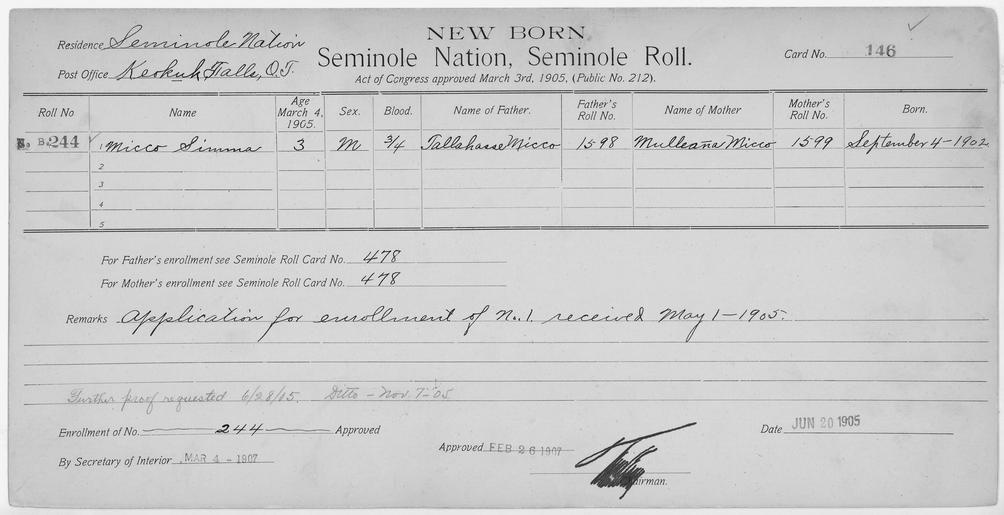 NEW BORN
Residence Seminole Nation
Seminole Nation, Seminole Roll.
Card No. 146
Post Office Keokuk Falls, O.T.
Act of Congress approved March 3rd, 1905, (Public No. 212).
Roll No Name Age March 4, 1905. Sex. Blood. Name of Father. Father's Roll No. Name of Mother Mother's Roll No. Born.
B. 244 1 Micco Simma 3 M 3/4 Tallahasse Micco 1598 Mulleana Micco 1599 September 4-1902
2
3
4
5
For Father's enrollment see Seminole Roll Card No. 478
For Mother's enrollment see Seminole Roll Card No. 478
Remarks Application for enrollment of No. 1. received May 1-1905.
Further proof requested 6/28/05. Ditto - Nov. 7-'05
Enrollment of No. 244 Approved
Date JUN 20 1905
Approved FEB 26 1907
By Secretary of Interior MAR 4 - 1907